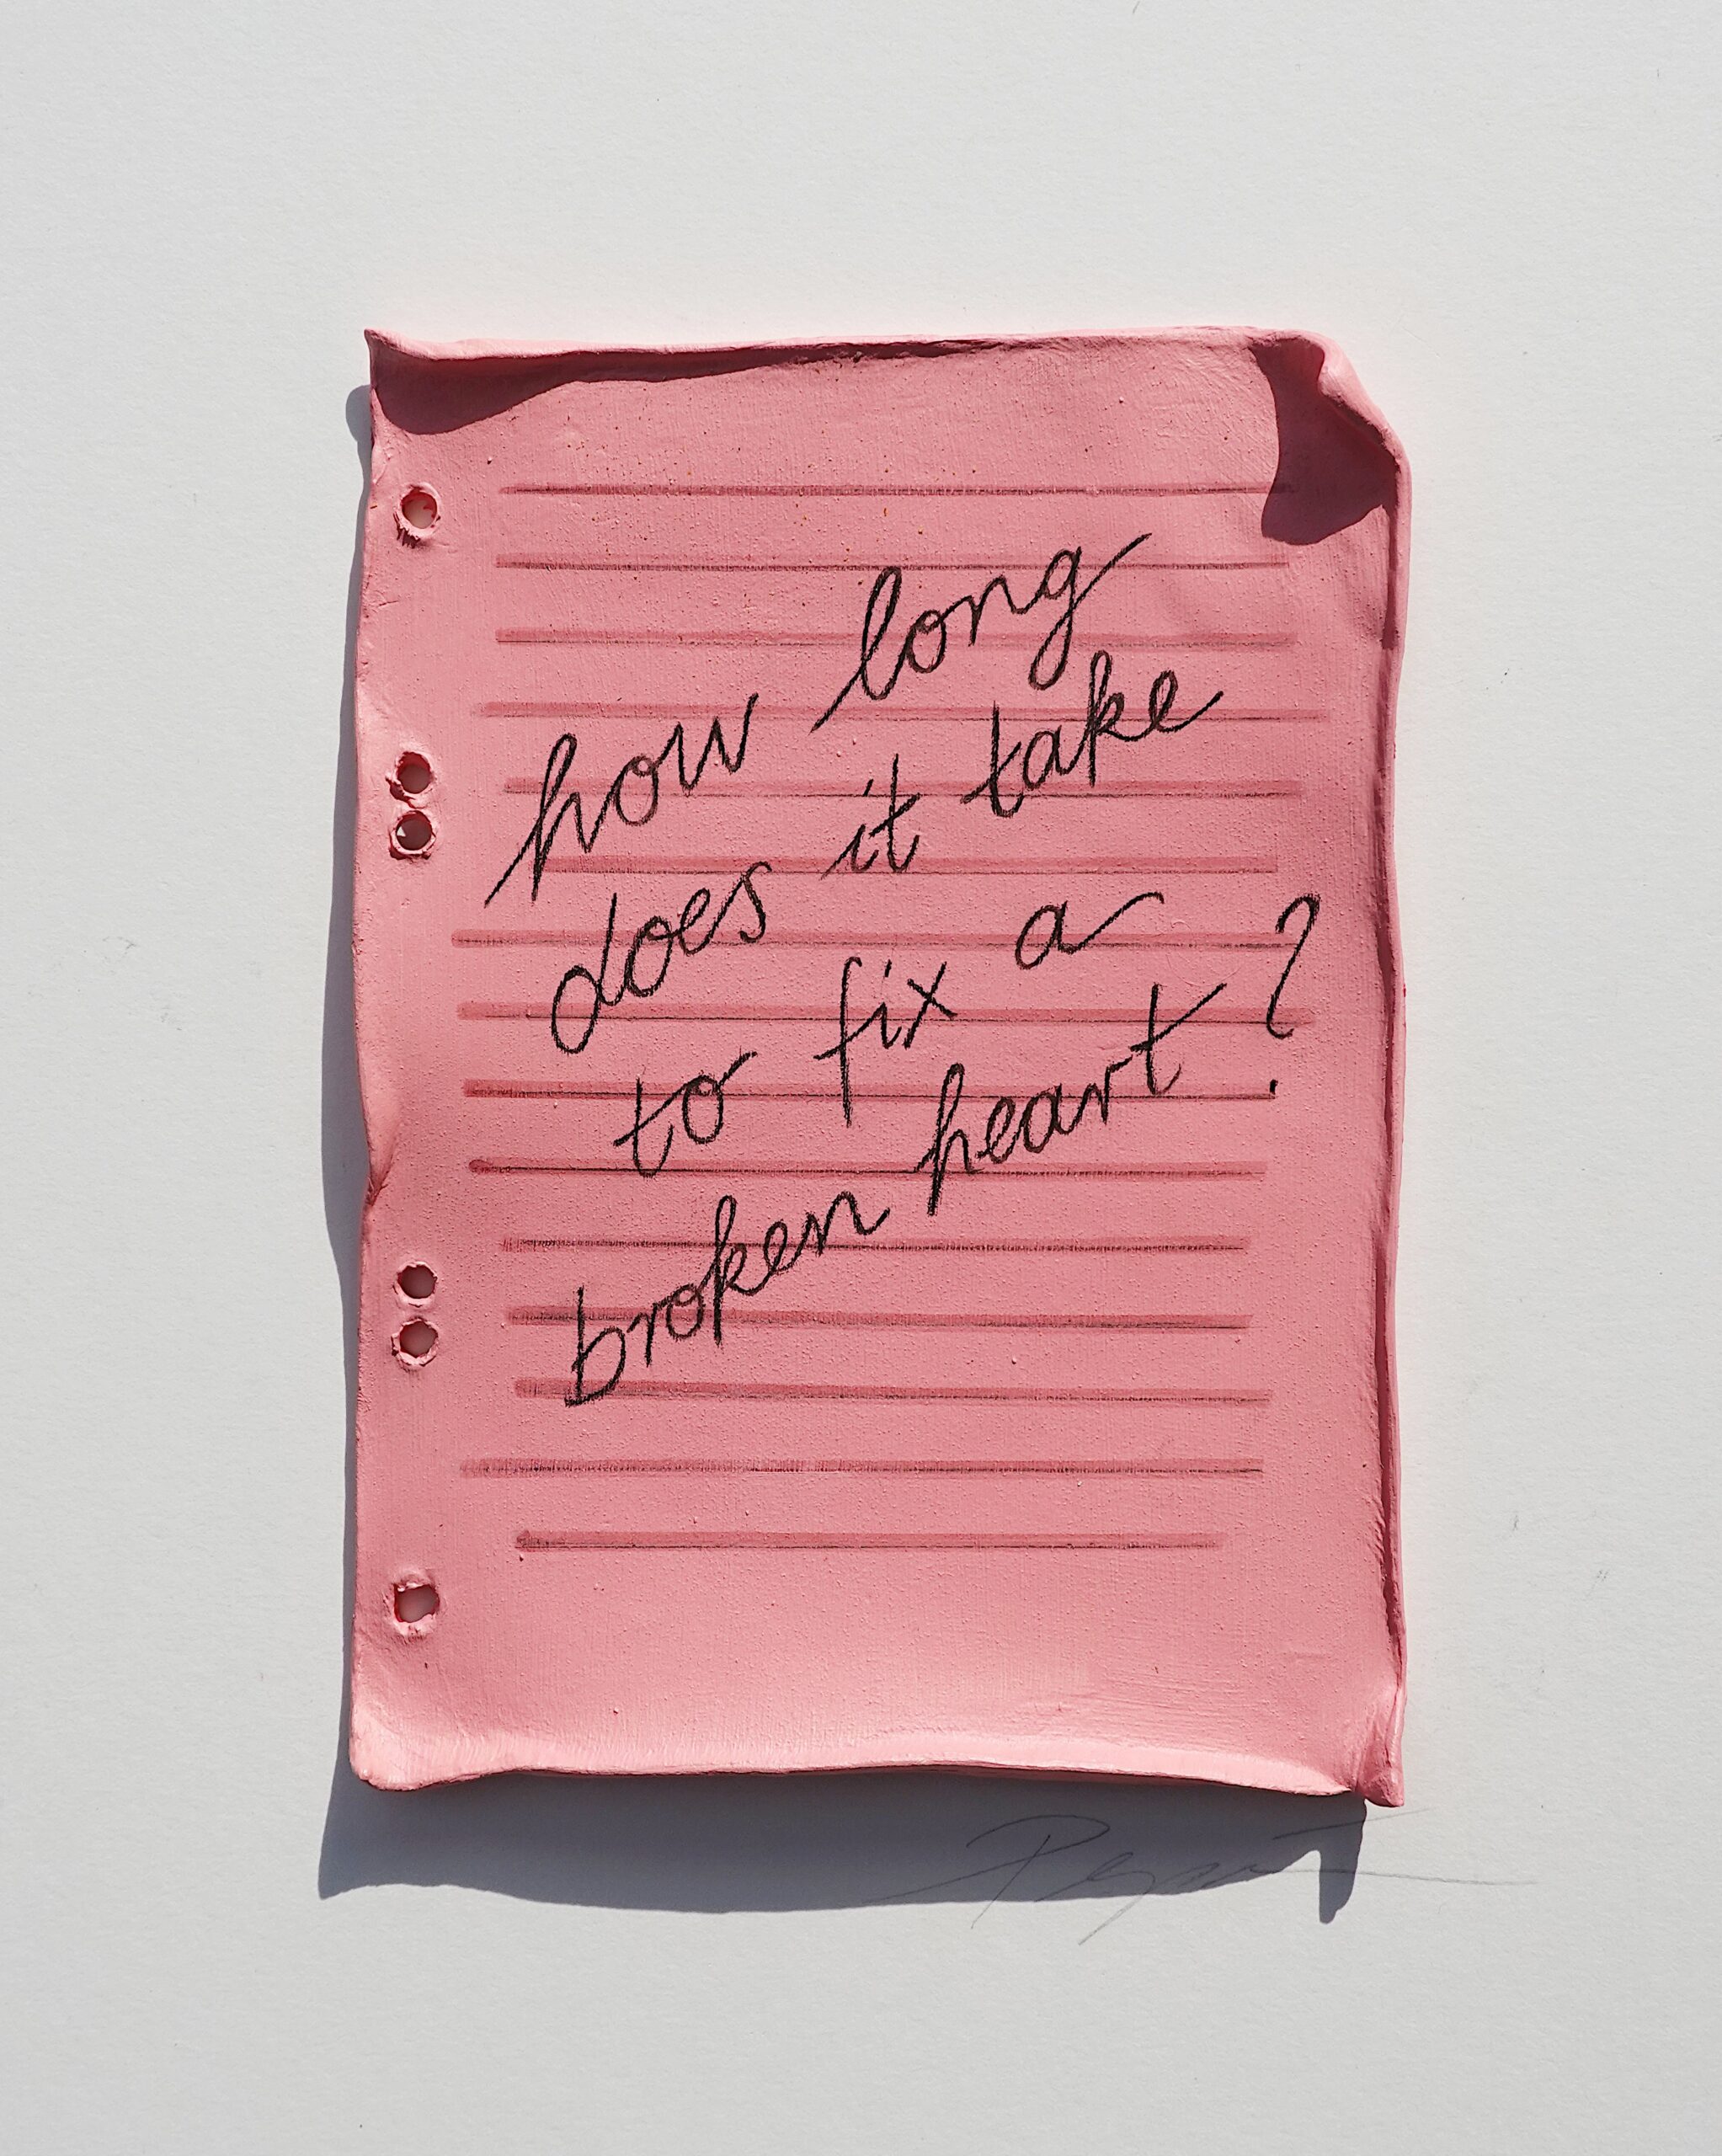 how long
does it take
to fix a
broken heart?